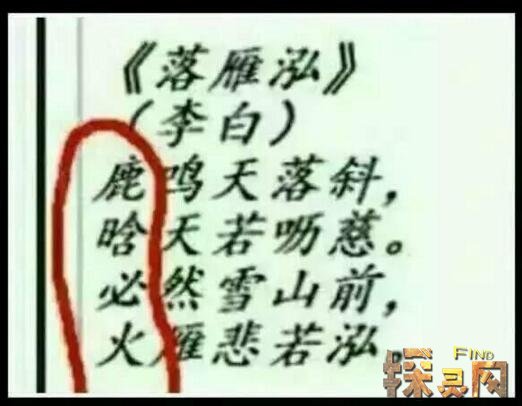 《落雁泓》
(李白)
鹿鸣天落斜，
晗天若呖慈。
必然雪山前，
火雁悲若泓.
FIND
探灵网